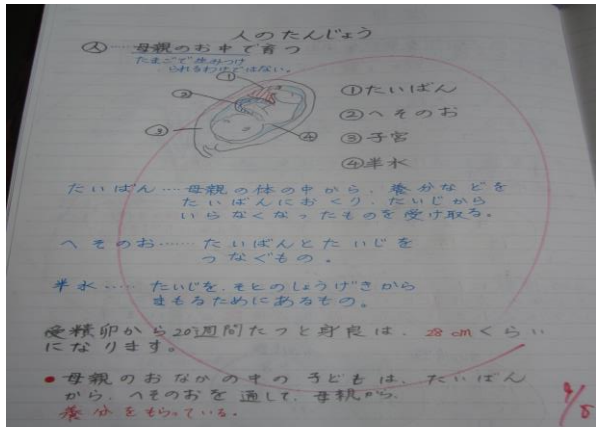 人のたんじょう
人……母親のお中で育つ
たまごで産みつけ
られるわけではない。
①
②
③
④
①たいばん
②へそのお
③子宮
④半水
たいばん…母親の体の中から、養分などを
たいばんにおくり、たいじから
いらなくなったものを受け取る。
へそのお……たいばんとたいじを
つなぐもの。
半水……たいじを、そとのしょうげきから
まもるためにあるもの。
受精卵から20週間たつと身長は、28cmくらい
になります。
●母親のおなかの中の子どもは、たいばん
から、へそのおを通して、母親から、
養分をもらっている。
9/8